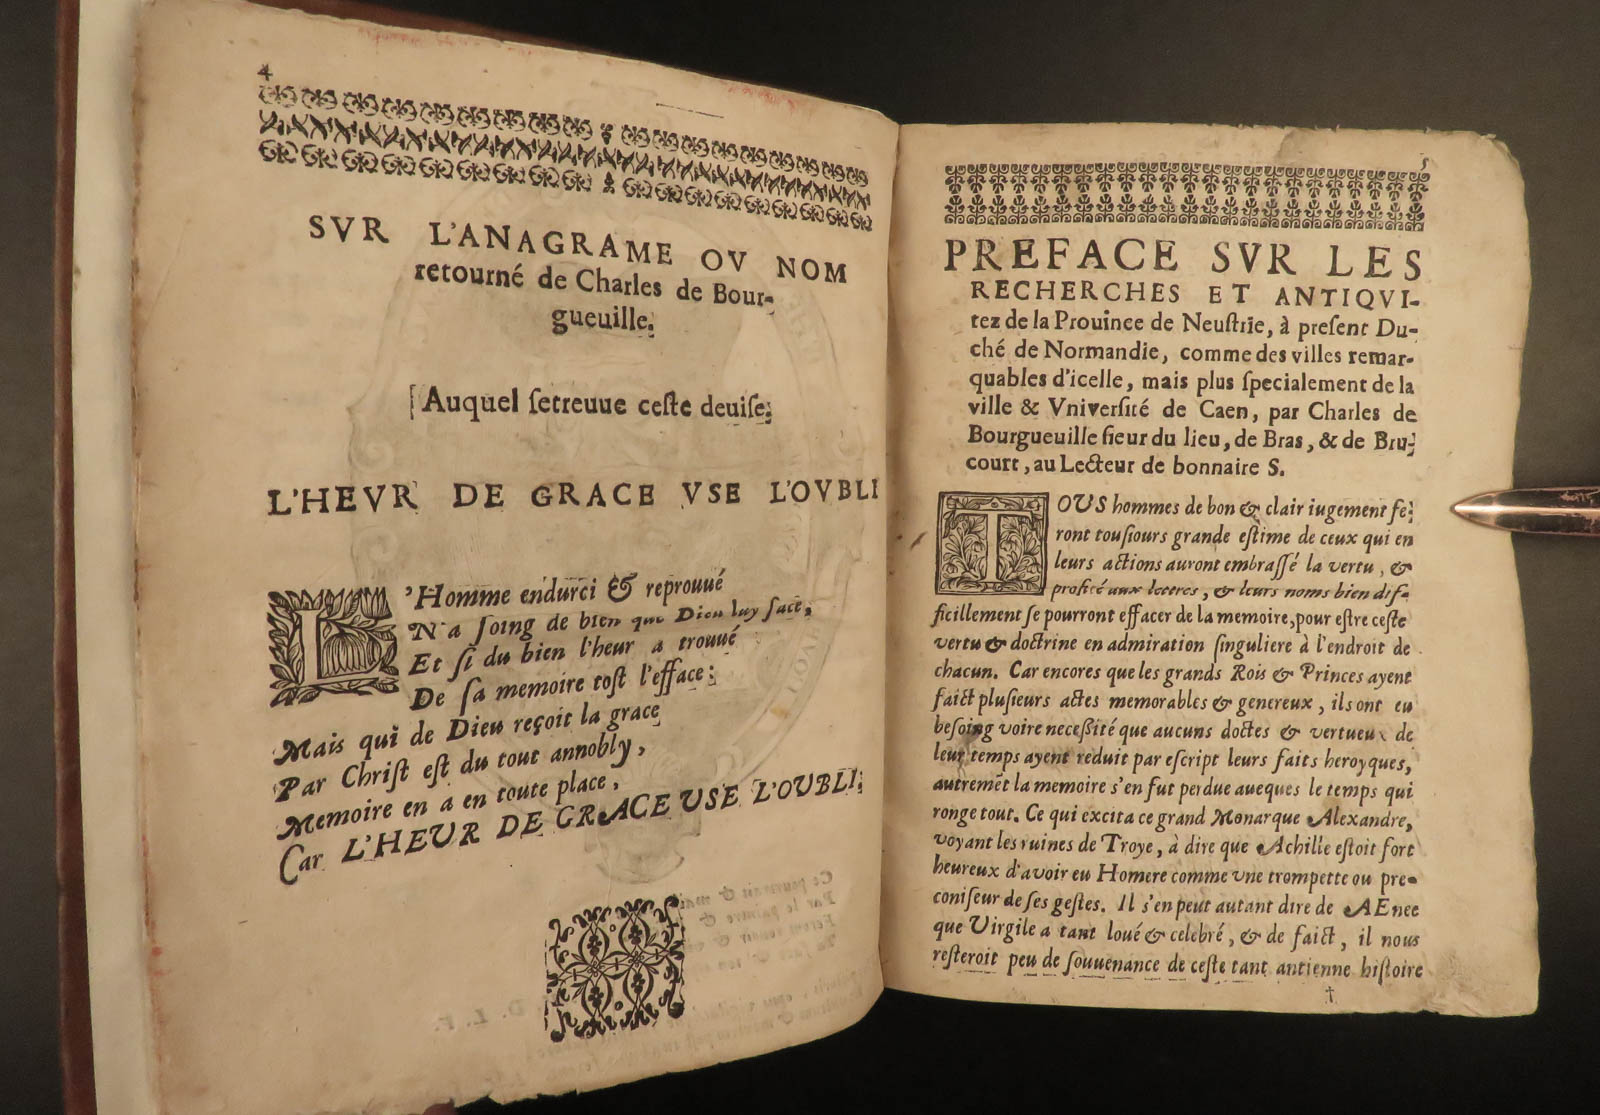 4
SVR L'ANAGRAME OV NOM
retourné de Charles de Bour-
gueuille.
[Auquel se treuue ceste deuise.
L'HEVR DE GRACE VSE L'OVBLI
L'Homme endurci & reprouué
N'a soing de bien que Dieu luy face,
Et si du bien l'heur a trouué
De sa memoire tost l'efface:
Mais qui de Dieu reçoit la grace
Par Christ est du tout annobly,
Memoire en a en toute place,
Car L'HEUR DE GRACE USE L'OUBLI.
5
PREFACE SVR LES
RECHERCHES ET ANTIQVI-
tez de la Prouince de Neuſtrie, à preſent Du-
ché de Normandie, comme des villes remar-
quables d'icelle, mais plus ſpecialement de la
ville & Vniverſité de Caen, par Charles de
Bourgueuille ſieur du lieu, de Bras, & de Bru-
court, au Lecteur de bonnaire S.
TOUS hommes de bon & clair iugement fe-
ront touſiours grande eſtime de ceux qui en
leurs actions auront embraſſé la vertu, &
profité aux lettres, & leurs noms bien dif-
ficillement ſe pourront effacer de la memoire, pour eſtre ceſte
vertu & doctrine en admiration ſinguliere à l'endroit de
chacun. Car encores que les grands Rois & Princes ayent
faict pluſieurs actes memorables & genereux, ils ont eu
beſoing voire neceßité que aucuns doctes & vertueux de
leur temps ayent reduit par eſcript leurs faits heroyques,
autremẽt la memoire s'en fut perdue aueques le temps qui
ronge tout. Ce qui excita ce grand Monarque Alexandre,
voyant les ruines de Troye, à dire que Achille eſtoit fort
heureux d'avoir eu Homere comme vne trompette ou pre-
coniſeur de ſes geſtes. Il s'en peut autant dire de AEnee
que Virgile a tant loué & celebré, & de faict, il nous
reſteroit peu de ſouuenance de ceſte tant antienne hiſtoire
†